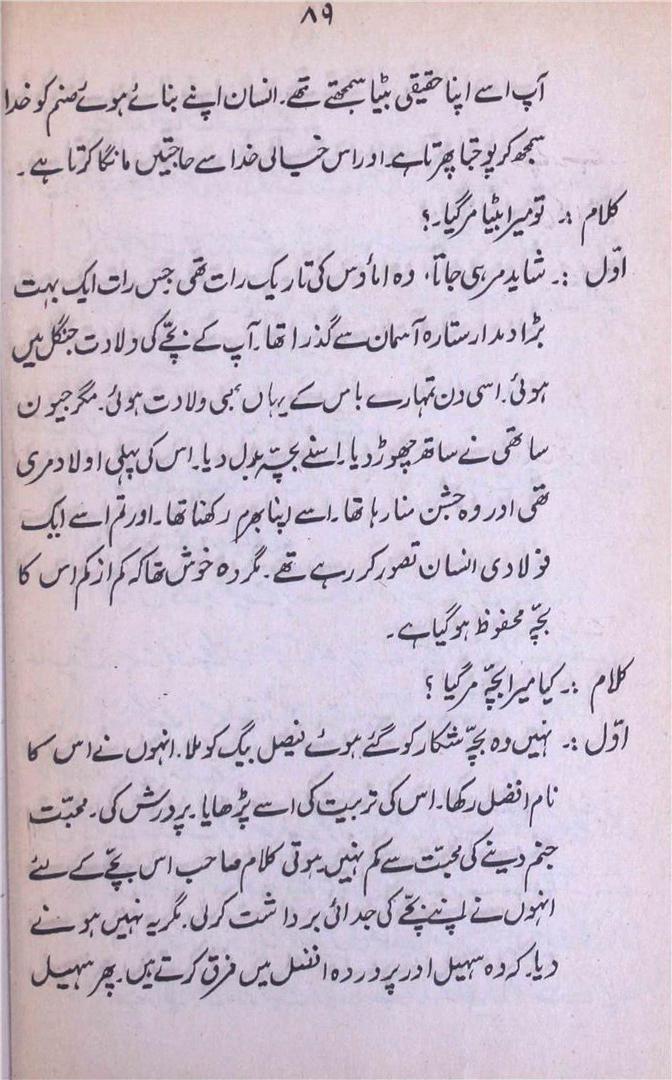 ۸۹
آپ اسے اپنا حقیقی بیٹا سمجھتے تھے۔ انسان اپنے بنائے ہوئے صنم کو خدا
سمجھ کر پوجتا پھرتا ہے اور اس خیالی خدا سے حاجتیں مانگا کرتا ہے۔
کلام :۔ تو میرا بیٹا مر گیا۔؟
اوّل :۔ شاید مر ہی جاتا، وہ اماوس کی تاریک رات تھی جس رات ایک بہت
بڑا دمدار ستارہ آسمان سے گذرا تھا۔ آپ کے بچّے کی ولادت جنگل میں
ہوئی۔ اسی دن تمہارے باس کے یہاں بھی ولادت ہوئی۔ مگر جیون
ساتھی نے ساتھ چھوڑ دیا۔ اسنے بچّہ بدل دیا۔ اس کی پہلی اولاد مری
تھی اور وہ جشن منا رہا تھا۔ اسے اپنا بھرم رکھنا تھا۔ اور تم اسے ایک
فولادی انسان تصور کر رہے تھے۔ مگر وہ خوش تھا کہ کم از کم اس کا
بچّہ محفوظ ہو گیا ہے۔
کلام :۔ کیا میرا بچّہ مر گیا ؟
اوّل :۔ نہیں وہ بچّہ شکار کو گئے ہوئے فیصل بیگ کو ملا۔ انہوں نے اس کا
نام افضل رکھا۔ اس کی تربیت کی اسے پڑھایا۔ پرورش کی۔ محبّت
جنم دینے کی محبّت سے کم نہیں ہوتی کلام صاحب اس بچّے کے لئے
انہوں نے اپنے بچّے کی جدائی برداشت کر لی۔ مگر یہ نہیں ہونے
دیا۔ کہ وہ سہیل اور پروردہ افضل میں فرق کرتے ہیں۔ پھر سہیل